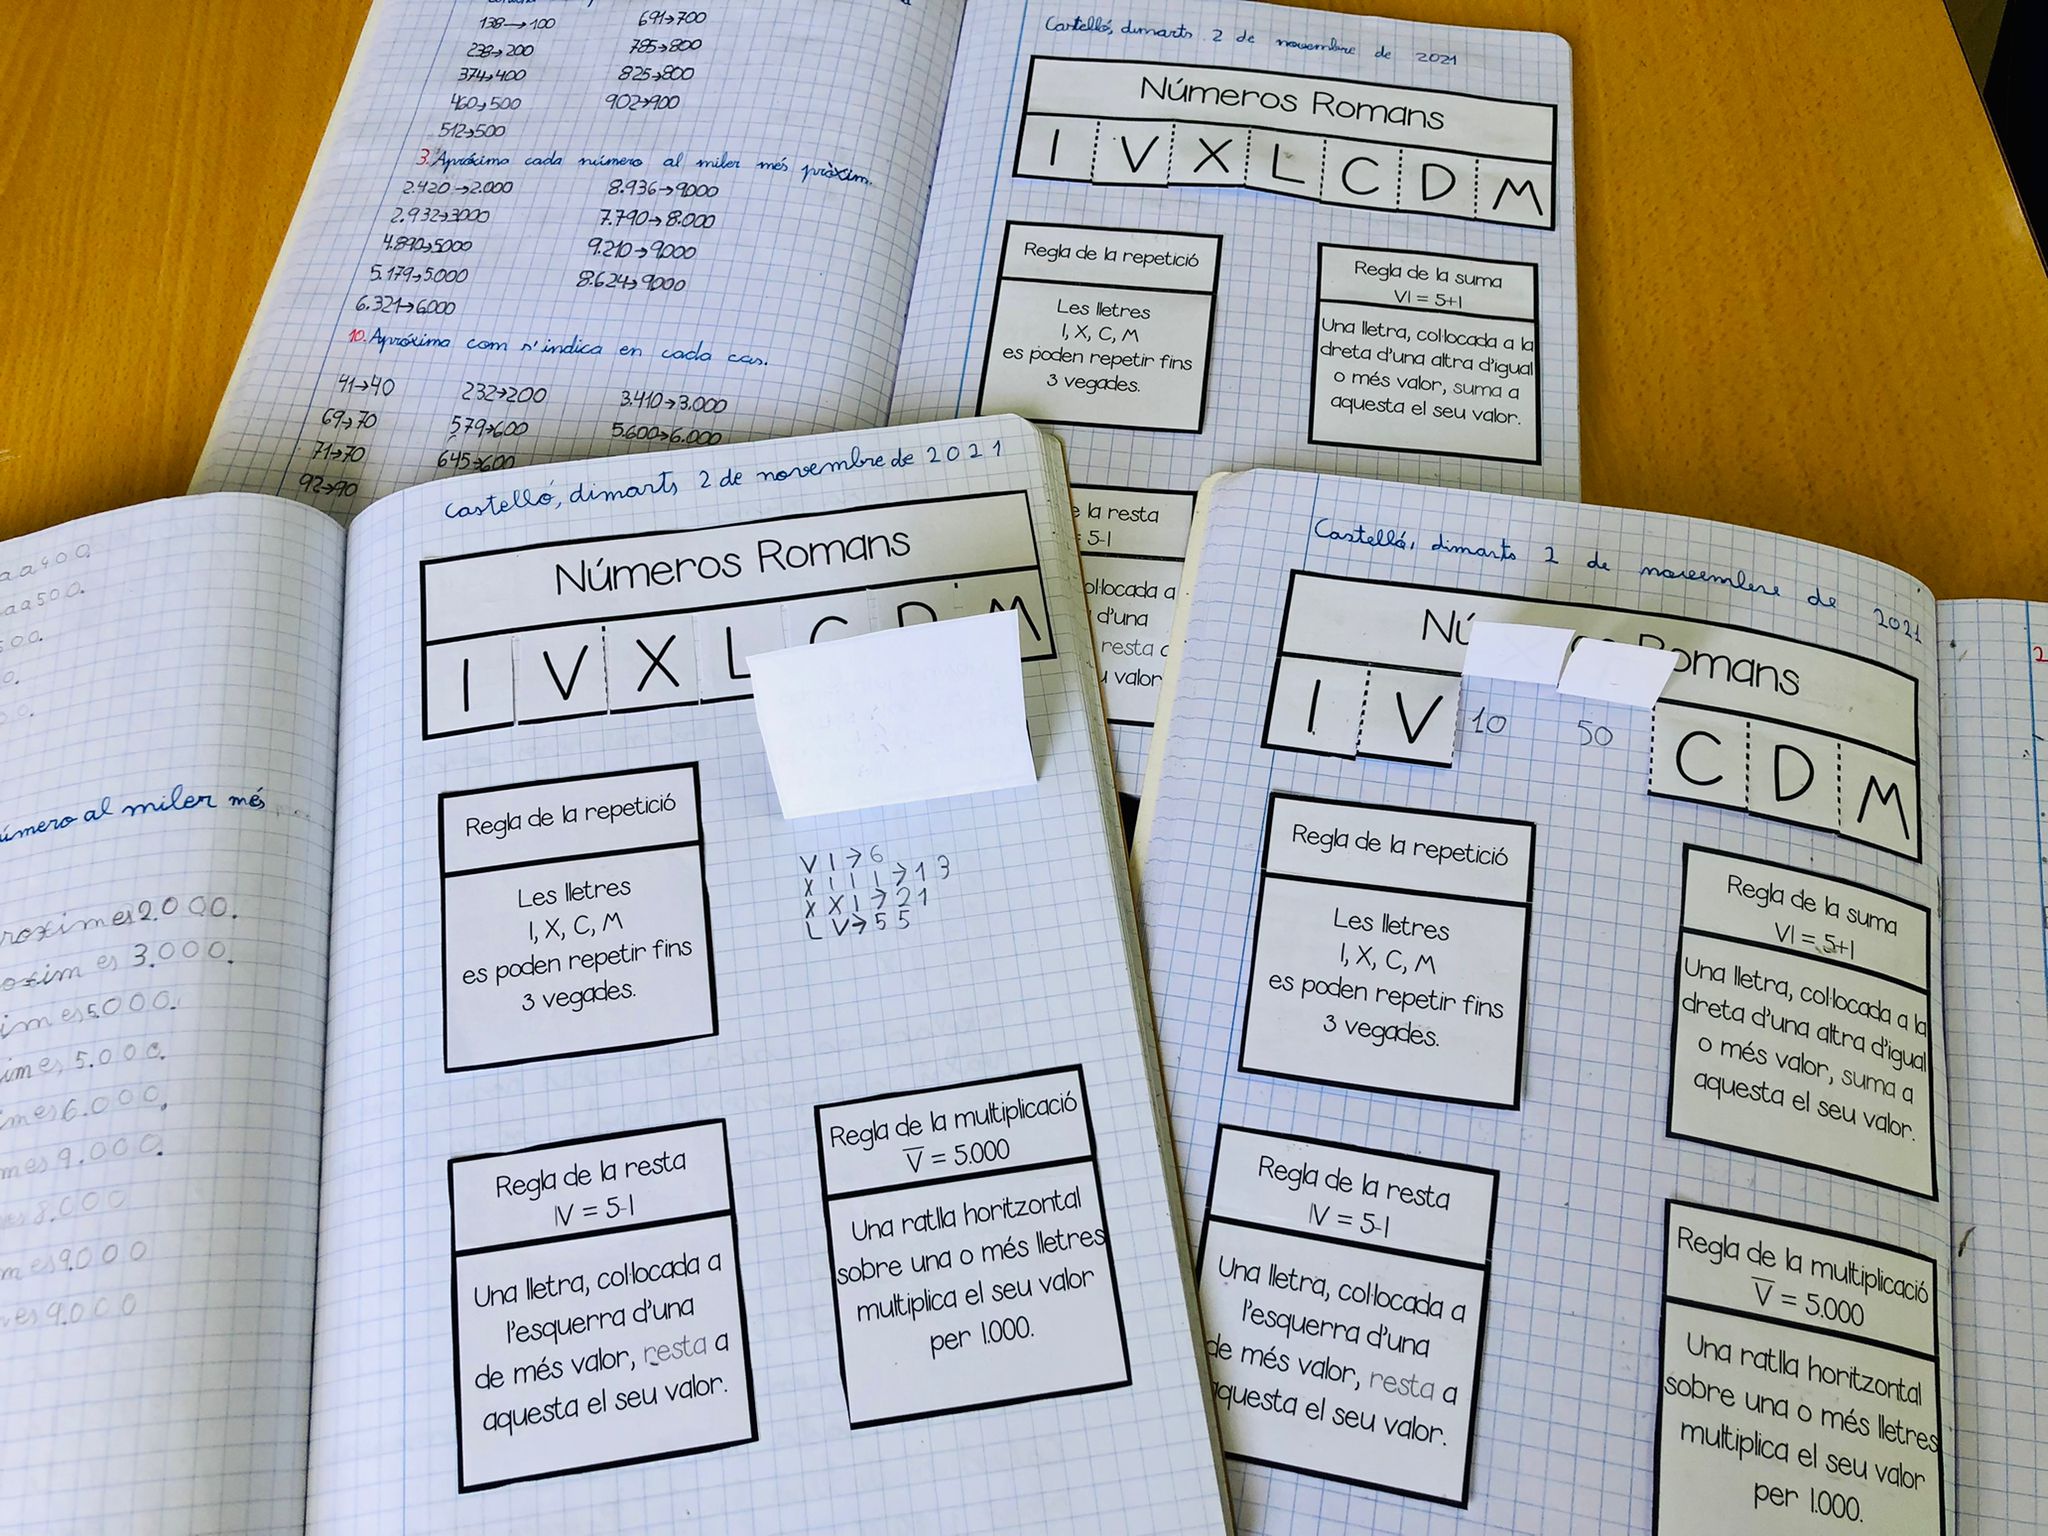 138→100
691→700
238→200
785→800
374→400
825→800
460→500
902→900
512→500
3. Apróxima cada número al miler més pròxim.
2.420→2.000
8.936→9000
2.932→3000
7.790→8.000
4.890→5000
9.210→9.000
5.179→5.000
8.624→9000
6.321→6000
10. Apróxima com s'indica en cada cas.
41→40
232→200
3.410→3.000
69→70
579→600
5.600→6.000
71→70
645→600
92→90
Castelló, dimarts 2 de novembre de 2021
Números Romans
I V X L C D M
Regla de la repetició
Les lletres
I, X, C, M
es poden repetir fins
3 vegades.
Regla de la suma
VI = 5+1
Una lletra, col·locada a la
dreta d'una altra d'igual
o més valor, suma a
aquesta el seu valor.
la resta
5-1
a
d'una
resta
valor
número al miler més
es 2.000.
es 3.000.
es 5.000.
es 5.000.
es 6.000.
es 9.000.
8.000
es 9.000
es 9.000
Castelló, dimarts 2 de novembre de 2021
Números Romans
I V X L C D M
Regla de la repetició
Les lletres
I, X, C, M
es poden repetir fins
3 vegades.
VI→6
XIII→13
XXI→21
LV→55
Regla de la resta
IV = 5-1
Una lletra, col·locada a
l'esquerra d'una
de més valor, resta a
aquesta el seu valor.
Regla de la multiplicació
V̅ = 5.000
Una ratlla horitzontal
sobre una o més lletres
multiplica el seu valor
per 1.000.
Castelló, dimarts 2 de novembre de 2021
Romans
I V 10 50 C D M
Regla de la repetició
Les lletres
I, X, C, M
es poden repetir fins
3 vegades.
Regla de la suma
VI = 5+1
Una lletra, col·locada a la
dreta d'una altra d'igual
o més valor, suma a
aquesta el seu valor.
Regla de la resta
IV = 5-1
Una lletra, col·locada a
l'esquerra d'una
de més valor, resta a
aquesta el seu valor.
Regla de la multiplicació
V̅ = 5.000
Una ratlla horitzontal
sobre una o més lletres
multiplica el seu valor
per 1.000.
2